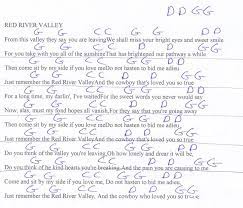 D D G G
RED RIVER VALLEY
G G C C G G D D
From this valley they say you are leavingWe shall miss your bright eyes and sweet smile
G G C C D D G G
For you take with you all of the sunshineThat has brightened our pathway a while
G G C C G G D D
Then come sit by my side if you love meDo not hasten to bid me adieu
G G C C D D G G
Just remember the Red River ValleyAnd the cowboy that's loved you so true
G G C C G G D D
For a long time, my darlin', I've waitedFor the sweet words you never would say
G G C C D D G G
Now, alas, must my fond hopes all vanish,For they say that you're going away
G G C C G G D D
Then come sit by my side if you love meDo not hasten to bid me adieu
G G C C D D G G
Just remember the Red River ValleyAnd the cowboy that's loved you so true
G G C C G G D D
Do you think of the valley you're leaving,Oh how lonely and drear it will be,
G G C C D D G G
Do you think of the kind hearts you're breaking,And the pain you are causing to me
G G C C G G D D
Come and sit by my side if you love me, Do not hasten to bid me adieu,
G G C C D D G G
Just remember the Red River Valley,And the cowboy who loved you so true.